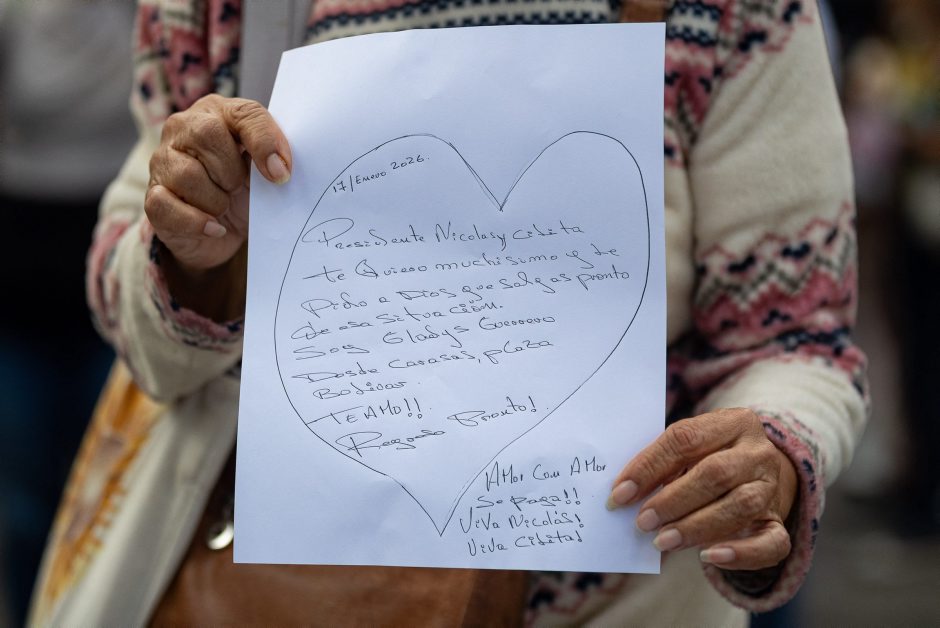 17/Enero 2026.
Presidente Nicolas y Cilita
te Quiero muchisimo y le
Pido a Dios que salgas pronto
de esa situación.
Soy Gladys Guerrero
Desde Carasas, plaza
Bolivar
TE AMO!!
Regreso Pronto!
AMor Con AMor
Se Paga!!
ViVa Nicolás!
ViVa Cilita!